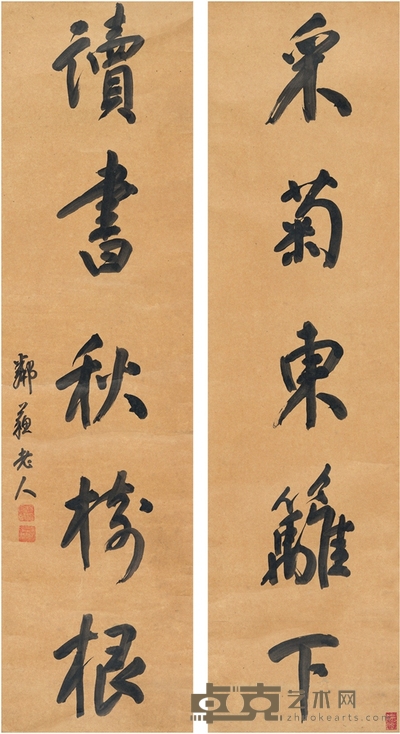 采菊東籬下
讀書秋樹根
鄰蘇老人
卓克艺术网
zhuokearts.com